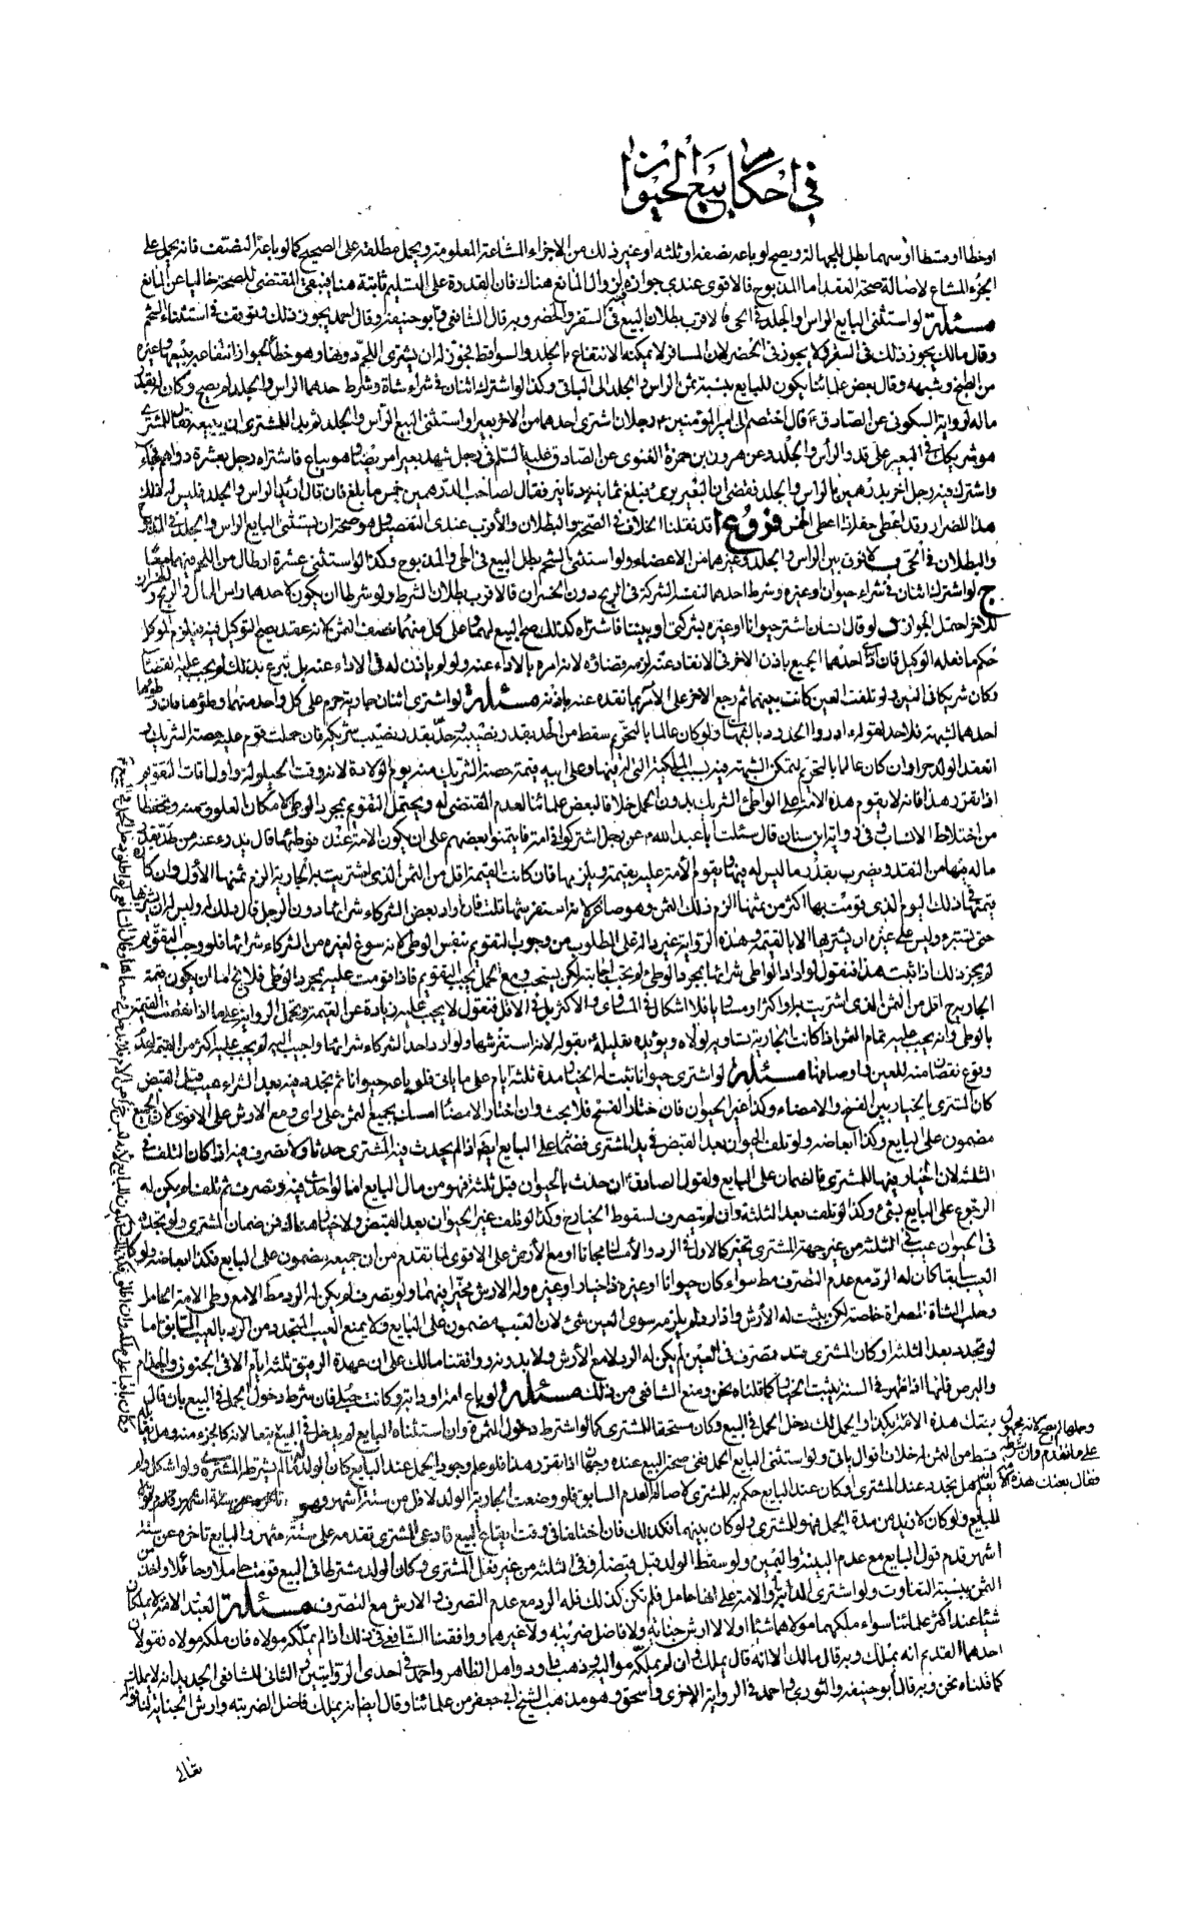 في احكام بيع الحيوان
او خطا او مشطا او سهما بطل للجهالة ويصح لو باعه بنصفه او ثلثه او غير ذلك من الاجزاء المشاعة المعلومة ويحمل مطلقه على الصحيح كما لو باعه النصف فانه يحمل على
الجزء المشاع لاصالة صحة العقد اما المذبوح فالاقوى عندي جوازه لزوال المانع هناك فان القدرة على التسليم ثابتة هنا فيبقى المقتضى للصحة خاليا عن المانع
مسئلة لو استثنى البايع الراس والجلد في الحي فالاقرب بطلان البيع في السفر والحضر وبه قال الشافعي وابو حنيفة وقال احمد يجوز ذلك وتوقف في استثناء الشحم
وقال مالك يجوز ذلك في السفر ولا يجوز في الحضر لان المسافر لا يمكنه الانتفاع بالجلد والسواقط فجوز له ان يشتري اللحم دونها وهو خطأ لجواز انتفاعه ببيعها وغيره
من الطبخ وشبهه وقال بعض علمائنا يكون للبايع بنسبة ثمن الراس والجلد الى الباقي وكذا لو اشترك اثنان في شراء شاة وشرط احدهما الراس والجلد لم يصح وكان له بقدر
ماله لرواية السكوني عن الصادق ع قال اختصم الى امير المؤمنين ع رجلان اشترى احدهما من الاخر بعيرا واستثنى البيع الراس والجلد ثم بدا للمشتري ان يبيعه فقال للمشتري
هو شريكك في البعير على قدر الرأس والجلد وعن هرون بن حمزة الغنوي عن الصادق عليه السلم في رجل شهد بعيرا مريضا وهو يباع فاشتراه رجل بعشرة دراهم فجاء
واشترك فيه رجل اخر بدرهمين بالراس والجلد فقضى ان البعير برئ فبلغ ثمانية دنانير فقال لصاحب الدرهمين خمس ما بلغ فان قال اريد الراس والجلد فليس له ذلك
هذا الضرار وقد اعطى حقه اذا اعطى الخمس فروع ا قد نقلنا الخلاف في الصحة والبطلان والاقرب عندي التفصيل وهو صحة ان يستثنى البايع الراس والجلد في المذبوح
والبطلان في الحي ب لا فرق بين الراس والجلد وغيرهما من الاعضاء ولو استثنى الشحم بطل البيع في الحي والمذبوح وكذا لو استثنى عشرة ارطال من اللحم منهما معا
ج لو اشترك اثنان في شراء حيوان او غيره وشرط احدهما لنفسه الشركة في الربح دون الخسران فالاقرب بطلان الشرط ولو شرطا ان يكون لاحدهما راس المال والربح والخسران
للاخر احتمل الجواز د لو قال انسان اشتر حيوانا او غيره بشركتي او بيننا فاشتراه كذلك صح البيع لهما وعلى كل منهما نصف الثمن لانه عقد يصح التوكيل فيه فيلزم الموكل
حكم ما فعله الوكيل فان ادى احدهما الجميع باذن الاخر في الانقاد عنه لزمه قضاؤه لانه امره بالاداء عنه ولو لم ياذن له في الاداء عنه بل تبرع بذلك لم يجب عليه قضاؤه
وكان شريكا في العين ولو تلفت العين كانت بينهما ثم رجع الاخر على الامر بما نقده عنه باذنه مسئلة لو اشترى اثنان جارية حرم على كل واحد منهما وطؤها فان وطئها
احدهما لشبهة فلا حد لقوله ادرءوا الحدود بالشبهات ولو كان عالما بالتحريم سقط من الحد بقدر نصيبه وحد بقدر نصيب شريكه فان حملت قوم عليه حصة الشريك و
انعقد الولد حرا وان كان عالما بالتحريم لتمكن الشبهة فيه بسبب الملكية التي له فيها وعلى ابيه قيمة حصة الشريك منه يوم الولادة لانه وقت الحيلولة واول اوقات التقويم
اذا تقرر هذا فانه لا يقوم هذه الامة على الواطئ الشريك بدون الحمل خلافا لبعض علمائنا لعدم المقتضى له ويحتمل التقويم بمجرد الوطي لامكان العلوق منه وتحفظا
من اختلاط الانساب وفي رواية ابن سنان قال سئلت ابا عبد الله ع عن رجال اشتركوا في امة فايتمنوا بعضهم على ان يكون الامة عنده فوطئها قال يدرء عنه من الحد بقدر
ماله فيها من النقد ويضرب بقدر ما ليس له فيها ويقوم الامة عليه بقيمة ويلزمها فان كانت القيمة اقل من الثمن الذي اشتريت به الجارية الزم ثمنها الاول وان كان
قيمتها في ذلك اليوم الذي قومت بها اكثر من ثمنها الزم ذلك الثمن وهو صاغر لانه استفرشها قلت فان اراد بعض الشركاء شرائها دون الرجل قال ذلك له وليس له ان يشتريها
حتى يستبرئ وليس على غيره ان يشتريها الا بالقيمة وهذه الرواية غير دالة على المطلوب من وجوب التقويم بنفس الوطي لانه سوغ لغيره من الشركاء شرائها فلو وجب التقويم
لم يجز ذلك اذا ثبت هذا فنقول لو اراد الواطي شرائها بمجرد الوطي لم يجب اجابته لكن يستحب ومع الحمل يجب التقويم فاذا قومت عليه بمجرد الوطي فلا يخ اما ان يكون قيمة
الجارية ح اقل من الثمن الذي اشتريت به او اكثر او مساويا فلا اشكال في المساوي والاكثر بل في الاقل فنقول لا يجب عليه زيادة عن القيمة ويحمل الرواية على ما اذا نقصت القيمة
بالوطي فانه يجب عليه تمام الثمن اذا كانت الجارية تساويه لولاه ويؤيده تعليله ع بقوله لانه استفرشها ولو اراد احد الشركاء شرائها واجيب اليه لم يجب عليه اكثر من القيمة لعدم
وقوع نقصان منه للعين واوصافها مسئلة لو اشترى حيوانا ثبت له الخيار مدة ثلثة ايام على ما ياتي فلو باعه حيوانا ثم تجدد فيه بعد الشراء عيب قبل القبض
كان المشتري بالخيار بين الفسخ والامضاء وكذا غير الحيوان فان اختار الفسخ فلا بحث وان اختار الامضاء امسك بجميع الثمن على راي ومع الارش على الاقوى لان الجميع
مضمون على البايع وكذا ابعاضه ولو تلف الحيوان بعد القبض في يد المشتري فضمانه على البايع ايضا اذا لم يحدث فيه المشتري حدثا ولا تصرف فيه اذا كان التلف في
الثلثة لان الخيار فيها للمشتري فالضمان على البايع ولقول الصادق ع ان حدث بالحيوان قبل ثلثة فهو من مال البايع اما لو احدث فيه وتصرف ثم تلف لم يكن له
الرجوع على البايع بشئ وكذا لو تلف بعد الثلثة وان لم يتصرف لسقوط الخيار ح وكذا لو تلف غير الحيوان بعد القبض ولا خيار هناك فمن ضمان المشتري ولو تجدد
في الحيوان عيب في الثلثة من غير جهة المشتري تخير كالاول في الرد والامساك مجانا او مع الارش على الاقوى لما تقدم من ان جميعه مضمون على البايع فكذا ابعاضه ولو كان
العيب سابقا كان له الرد مع عدم التصرف مط سواء كان حيوانا او غيره وله الارش مخير فيهما ولو تصرف لم يكن له الرد مط الا مع وطي الامة الحامل
وحلب الشاة المصراة خاصة لكن يثبت له الارش
لو تجدد بعد الثلثة او كان المشتري قد تصرف في العين لم يكن له الرد لا مع الارش ولا بدونه ووافقنا مالك على ان عهدة الرقيق ثلثة ايام الا في الجنون والجذام
والبرص فانها اذا ظهرت في السنة يثبت الخيار كما قلناه نحن ومنع الشافعي من ذلك مسئلة لو باع امة او دابة وكانت حبلى فان شرط دخول الحمل في البيع بان قال
بعتك هذه الامة بكذا والحمل لك دخل الحمل في البيع وكان مستحقا للمشتري كما لو اشترط دخول الثمرة وان استثناه البايع لم يدخل في البيع تبعا لانه كالجزء منه وهل يقابله
قسط من الثمن احتمالان اقوال ياتي ولو استثنى البايع الحمل ففي صحة البيع عنده وجهان اذا تقرر هذا فلو علم وجود الحمل عند البايع كان الولد له ما لم يشترطه المشتري ولو اشكل ولم
يعلم هل تجدد عند المشتري او كان عند البايع حكم به للمشتري لاصالة العدم السابق فلو وضعت الجارية الولد لاقل من ستة اشهر فهو
للبايع ولو كان لازيد من مدة الحمل فهو للمشتري ولو كان بينهما فكذلك فان اختلفا في وقت ايقاع البيع فادعى المشتري تقدمه على ستة اشهر والبايع تاخره عن ستة
اشهر قدم قول البايع مع عدم البينة واليمين ولو سقط الولد قبل قبضه او في الثلثة من غير فعل المشتري وكان الولد مشترطا في البيع قومت حاملا وحائلا واخذ من
الثمن بنسبة التفاوت ولو اشترى الدابة او الامة على انها حامل فلم تكن كذلك فله الرد مع عدم التصرف والارش مع التصرف مسئلة العبد والامة لا يملكان
شيئا عند اكثر علمائنا سواء ملكهما مولاهما شيئا او لا لا ارش جناية ولا فاضل ضريبة ولا غيرهما ووافقنا الشافعي في ذلك اذا لم يملكه مولاه فان ملكه مولاه فقولان
احدهما القديم انه يملك وبه قال مالك الا انه قال يملك وان لم يملكه مواليه وذهب داود واهل الظاهر واحمد في احدى الروايتين والثاني للشافعي الجديد انه لا يملك
كما قلناه نحن وبه قال ابو حنيفة والثوري واحمد في الرواية الاخرى واسحق وهو مذهب الشيخ ابي جعفر من علمائنا وقال ايضا انه يملك فاضل الضريبة وارش الجناية لنا قوله
تعالى